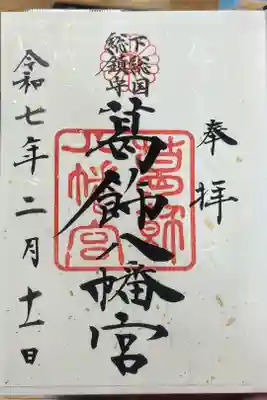 奉拝
下総国
総鎮守
葛飾八幡宮
葛飾
八幡宮
令和七年二月十一日